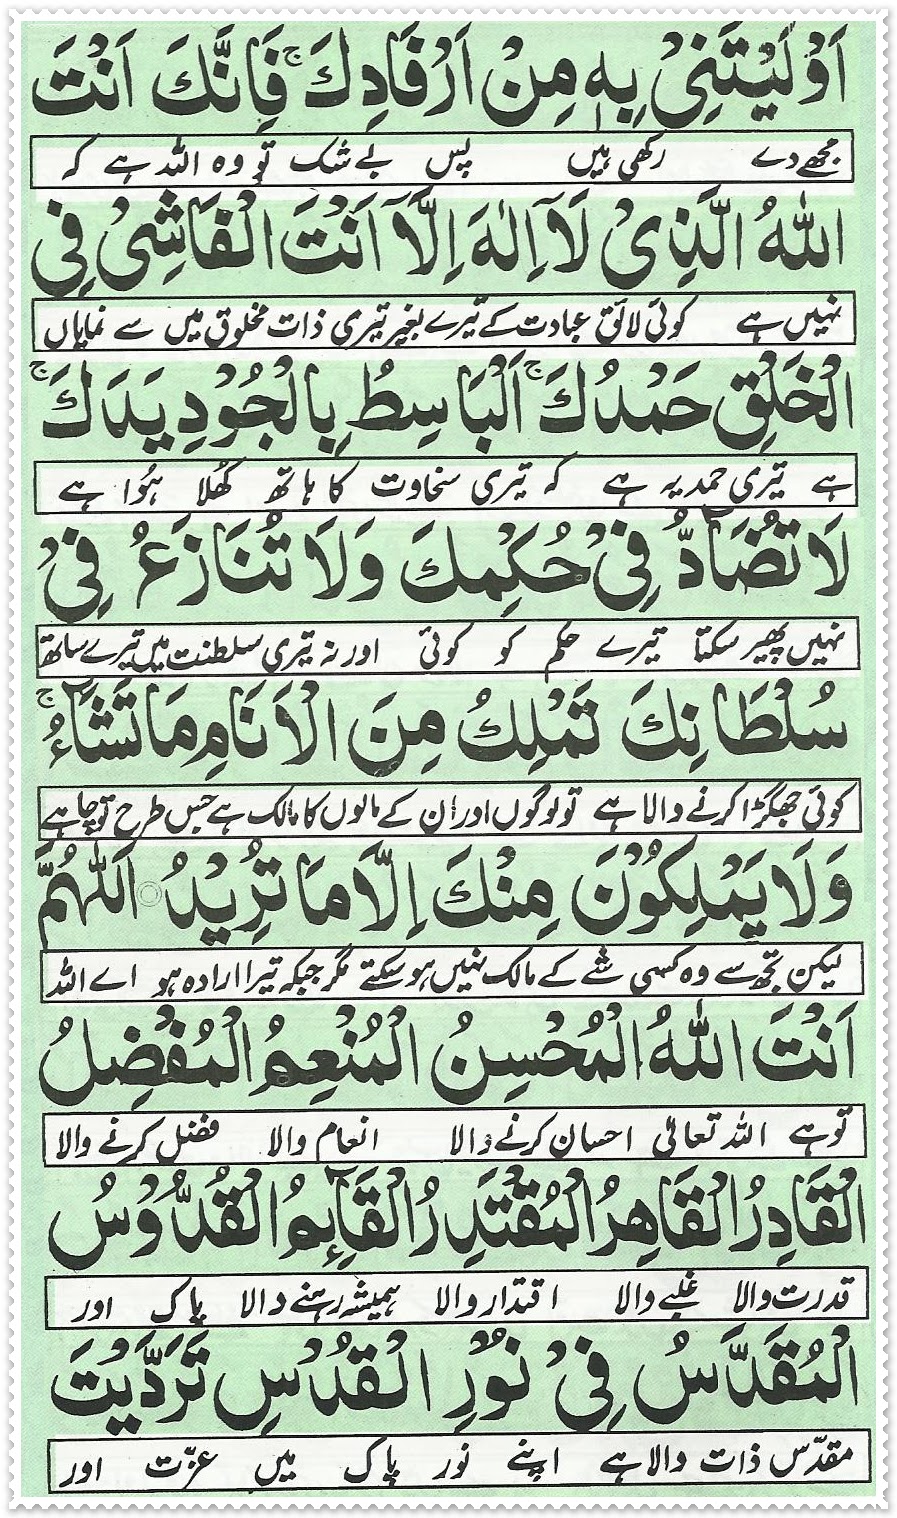 اَوْلَيْتَنِىْ بِهٖ مِنْ اَرْفَادِكَ ۚ فَاِنَّكَ اَنْتَ
مجھے دے رکھی ہیں پس بے شک تو وہ اللہ ہے کہ
اللّٰهُ الَّذِىْ لَآ اِلٰهَ اِلَّآ اَنْتَ الْفَاشِىْ فِى
نہیں ہے کوئی لائق عبادت کے تیرے بغیر تیری ذات مخلوق میں سے نمایاں
الْخَلْقِ حَمْدُكَ ۚ اَلْبَاسِطُ بِالْجُوْدِ يَدَكَ ۚ
ہے تیری حمد یہ ہے کہ تیری سخاوت کا ہاتھ کھُلا ہُوا ہے
لَا تُضَآدُّ فِىْ حُكْمِكَ وَلَا تُنَازَعُ فِىْ
نہیں پھیر سکتا تیرے حکم کو کوئی اور نہ تیری سلطنت میں تیرے ساتھ
سُلْطَانِكَ تَمْلِكُ مِنَ الْاَنَامِ مَا تَشَآءُ ۚ
کوئی جھگڑا کرنے والا ہے تو لوگوں اور اُن کے مالوں کا مالک ہے جس طرح تو چاہے
وَلَا يَمْلِكُوْنَ مِنْكَ اِلَّا مَا تُرِيْدُ ○ اَللّٰهُمَّ
لیکن تجھ سے وہ کسی شے کے مالک نہیں ہو سکتے مگر جبکہ تیرا ارادہ ہو اے اللہ
اَنْتَ اللّٰهُ الْمُحْسِنُ الْمُنْعِمُ الْمُفْضِلُ
تو ہے اللہ تعالیٰ احسان کرنے والا انعام والا فضل کرنے والا
الْقَادِرُ الْقَاهِرُ الْمُقْتَدِرُ الْقَآئِمُ الْقُدُّوْسُ
قدرت والا غلبے والا اقتدار والا ہمیشہ رہنے والا پاک اور
الْمُقَدَّسُ فِىْ نُوْرِ الْقُدْسِ تَرَدَّيْتَ
مقدّس ذات والا ہے اپنے نور پاک میں عزّت اور